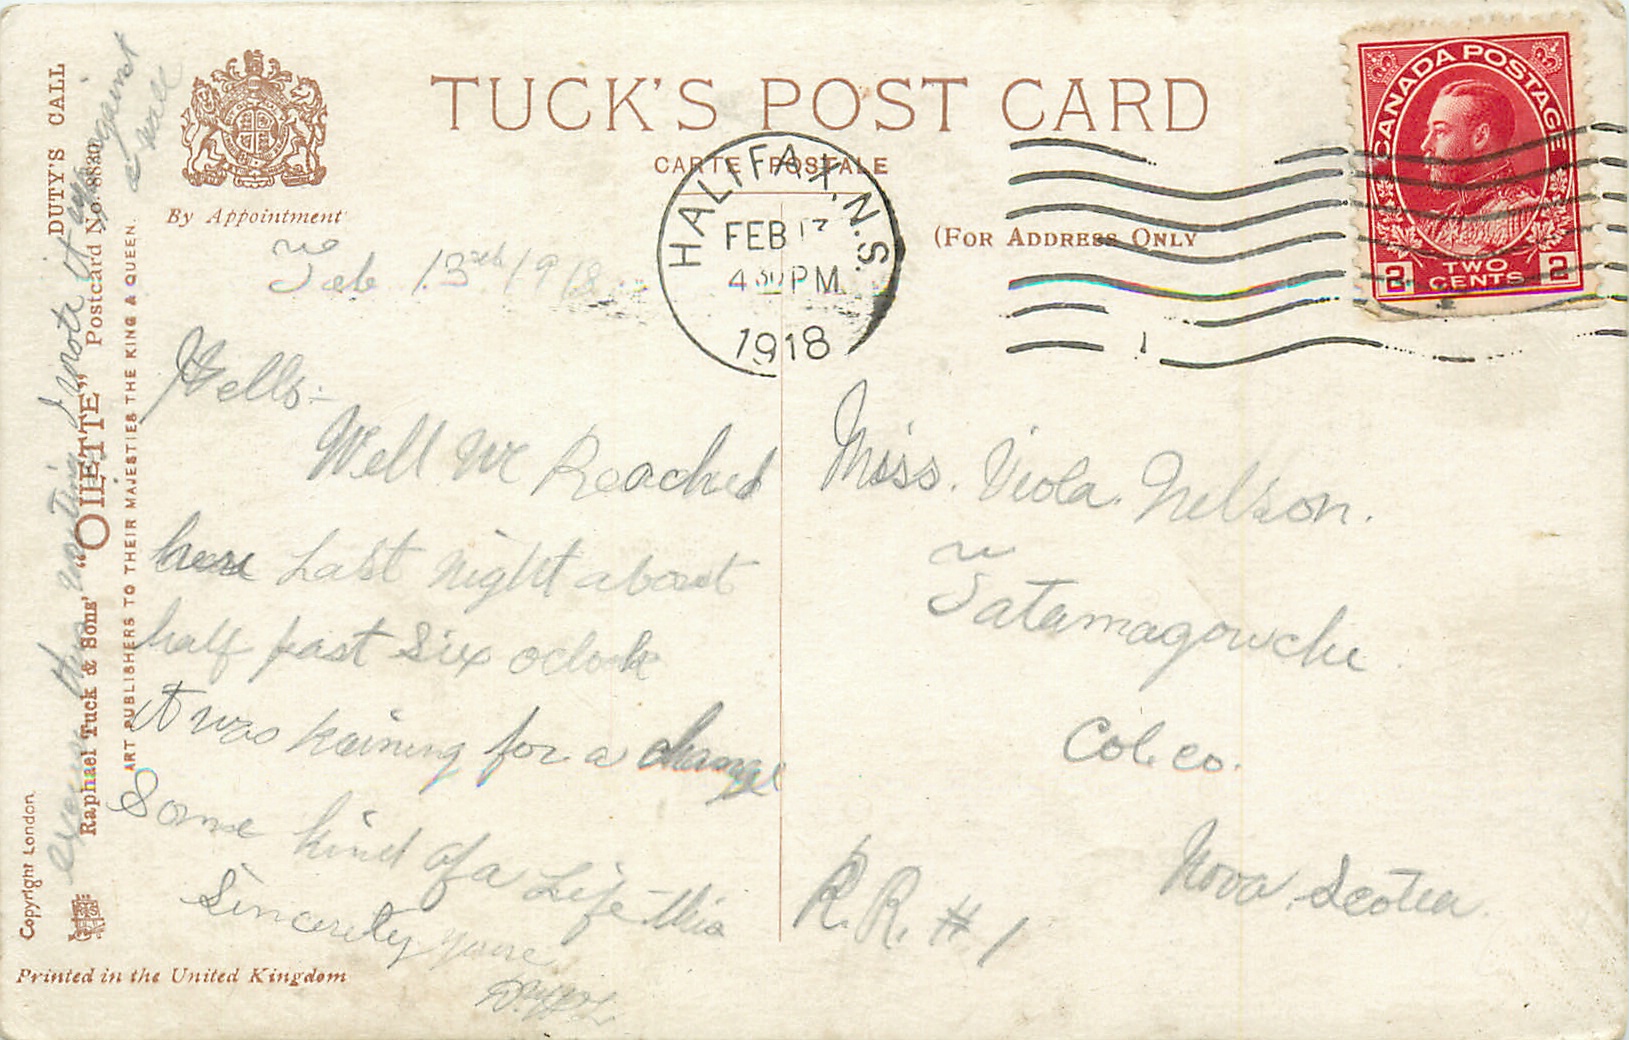 TUCK'S POST CARD
CARTE POSTALE
(FOR ADDRESS ONLY
By Appointment
CANADA POSTAGE
2 TWO CENTS 2
HALIFAX, N.S.
FEB 13
4 30 PM
1918
Feb 13th 1918
Hello:-
Well We Reached
here Last night about
half past Six oclock
it was raining for a change
Some kind of a Life this
Sincerely yours
Miss. Viola. Nelson.
Tatamagouche
Col. co.
Nova. Scotia
R.R. # 1
excuse this writing I wrote it up against
a wall
DUTY'S CALL
Raphael Tuck & Sons' "OILETTE" Postcard No. 8830
ART PUBLISHERS TO THEIR MAJESTIES THE KING & QUEEN.
Copyright London.
Printed in the United Kingdom